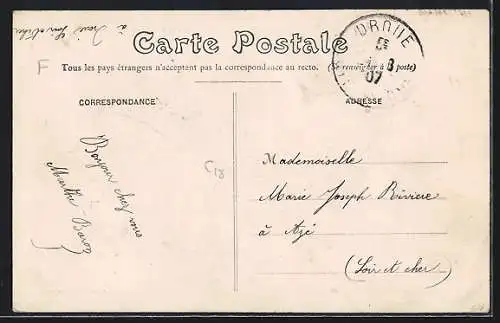 Carte Postale
Tous les pays étrangers n'acceptent pas la correspondance au recto. (Se renseigner à la poste)
F
DROUE
8
07
CORRESPONDANCE
ADRESSE
C18
Bonjour chez vous
Marthe
Mademoiselle
Marie Joseph Rivière
à Azé
(Loir et cher)